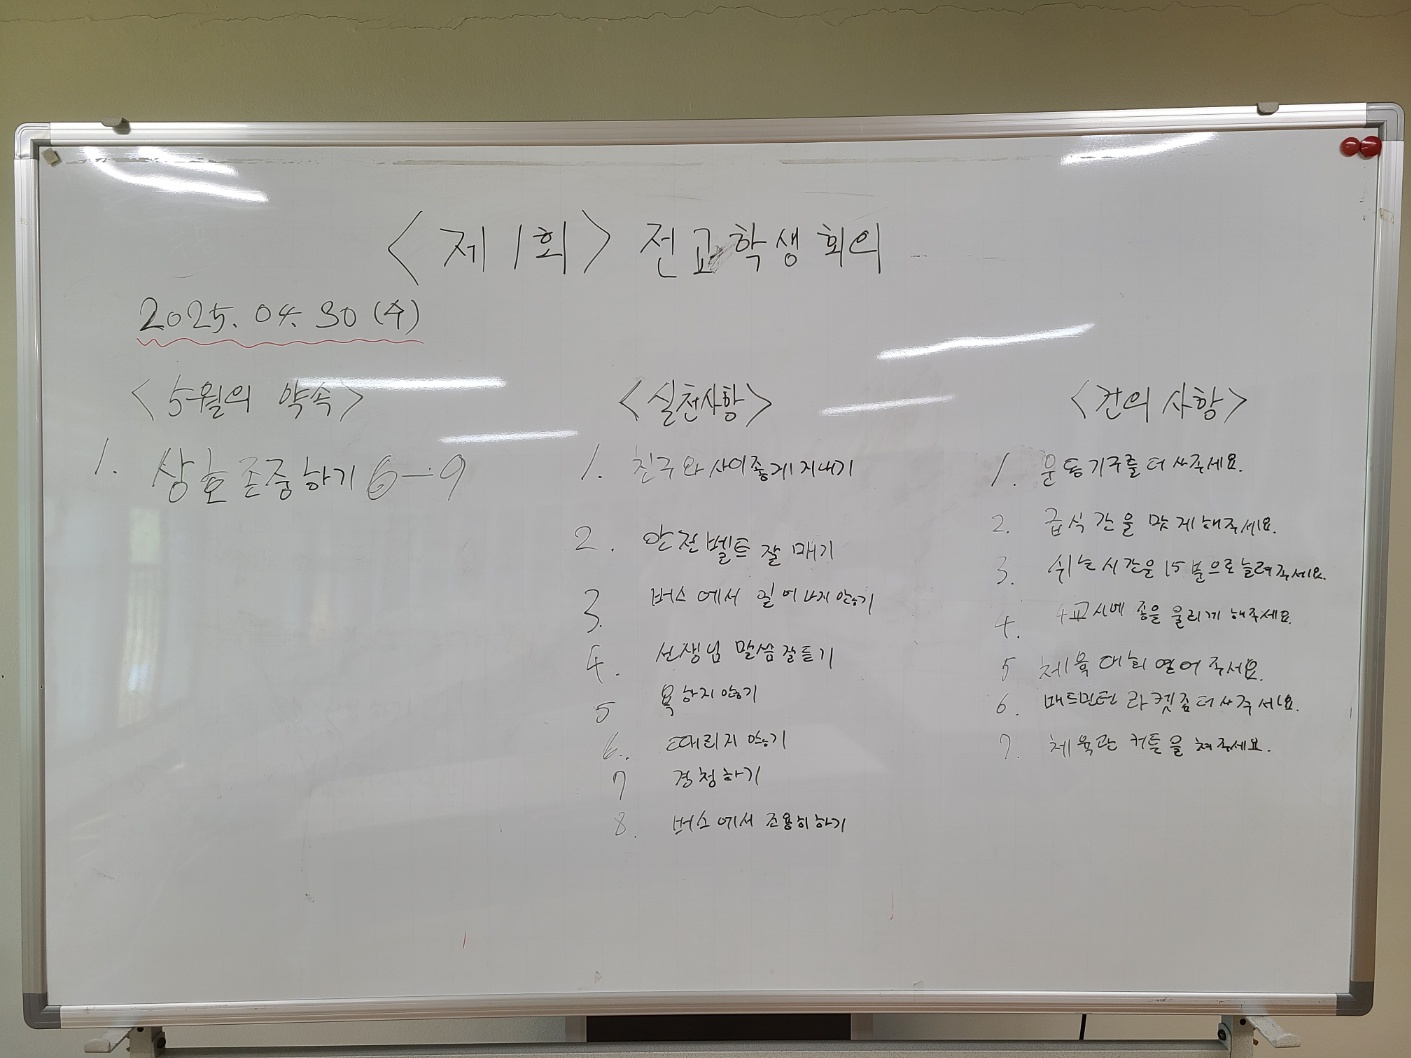 <제1회> 전교학생회의
2025. 04. 30 (수)
<5월의 약속>
1. 상호존중하기 6-9
<실천사항>
1. 친구와 사이좋게 지내기
2. 안전벨트 잘 매기
3. 버스에서 일어나지 않기
4. 선생님 말씀 잘 듣기
5 욕하지 않기
6. 때리지 않기
7 경청하기
8. 버스에서 조용히 하기
<건의 사항>
1. 운동기구를 더 사주세요.
2. 급식 간을 맞게 해주세요.
3. 쉬는 시간을 15분으로 늘려주세요.
4. 4교시에 종을 울리게 해주세요.
5 체육대회 열어 주세요.
6. 배드민턴 라켓 좀 더 사주세요.
7. 체육관 커튼을 쳐주세요.